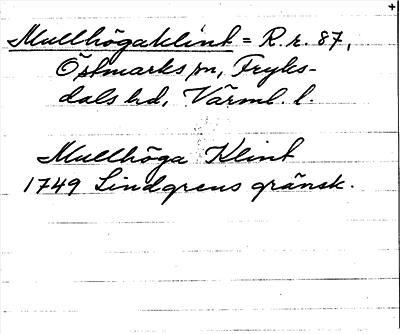 Mullhögaklint = R.r. 87,
Östmarks sn, Fryks-
dals hd, Värml. l.
Mullhöga Klint
1749 Lindgrens gränsk.